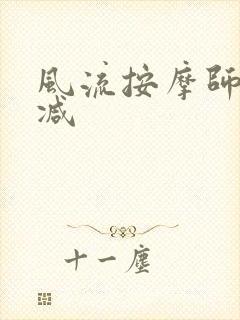 風流按摩師
减
十一塵